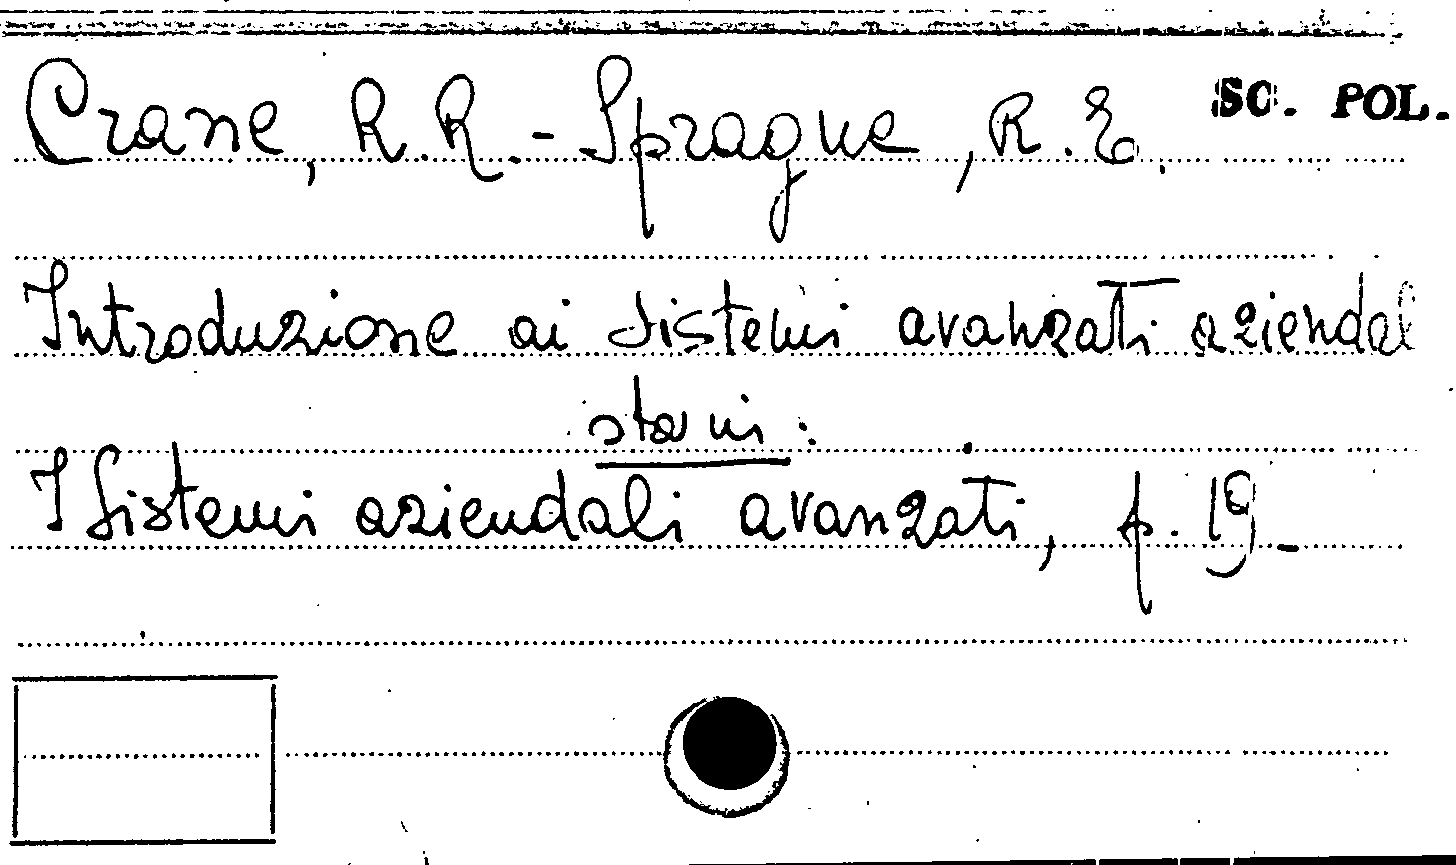 Crane, R.R. - Sprague, R.E. SC. POL.
Introduzione ai sistemi avanzati aziendal
sta in:
I Sistemi aziendali avanzati, p. 19 -